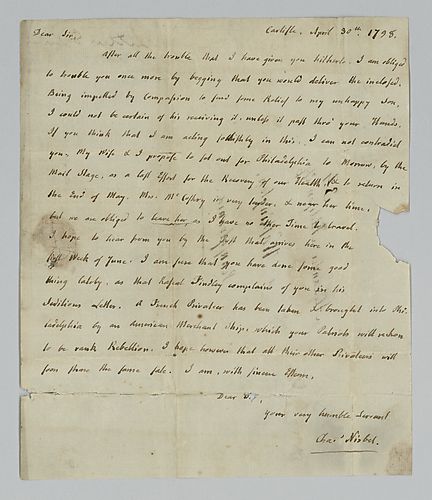 Carlisle, April 30th. 1798.
Dear Sir,
After all the trouble that I have given you hitherto, I am obliged
to trouble you once more by begging that you would deliver the inclosed.
Being impelled by Compassion to send some Relief to my unhappy Son,
I could not be certain of his receiving it, unless it past thro' your Hands.
If you think that I am acting foolishly in this, I can not contradict
you. My Wife & I propose to set out for Philadelphia to Morrow, by the
Mail Stage, as a last Effort for the Recovery of our Health, & to return in
the End of May. Mrs. McCoskry is very tender, & near her time,
but we are obliged to leave her, as I have no other Time to travel.
I hope to hear from you by the Post that arrives here in the
first Week of June. I am sure that you have done some good
thing lately, as that Rascal Findley complains of you in his
Seditious Letter. A French Privateer has been taken & brought into Phi-
ladelphia by an American Merchant Ship, which your Patriots will reckon
to be rank Rebellion. I hope however that all their other Privateers will
soon share the same fate. I am, with sincere Esteem,
Dear Sir,
Your very humble Servant
Chas. Nisbet.